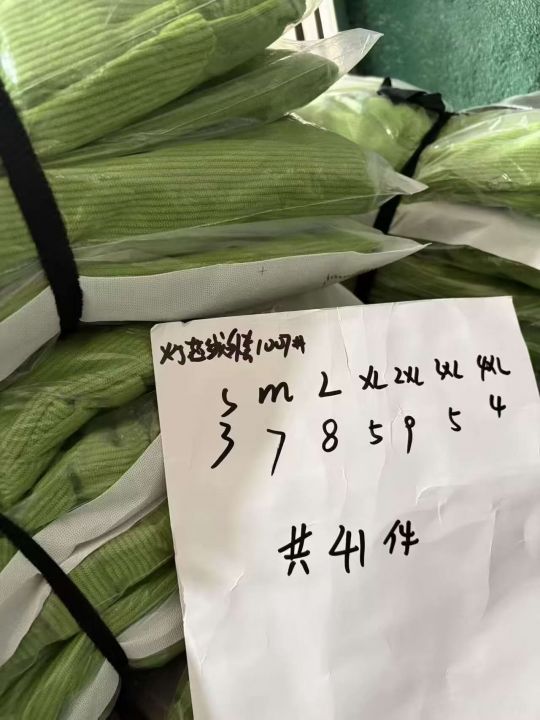 灯芯绒外套1007#
S M L XL 2XL 3XL 4XL
3 7 8 5 9 5 4
共41件